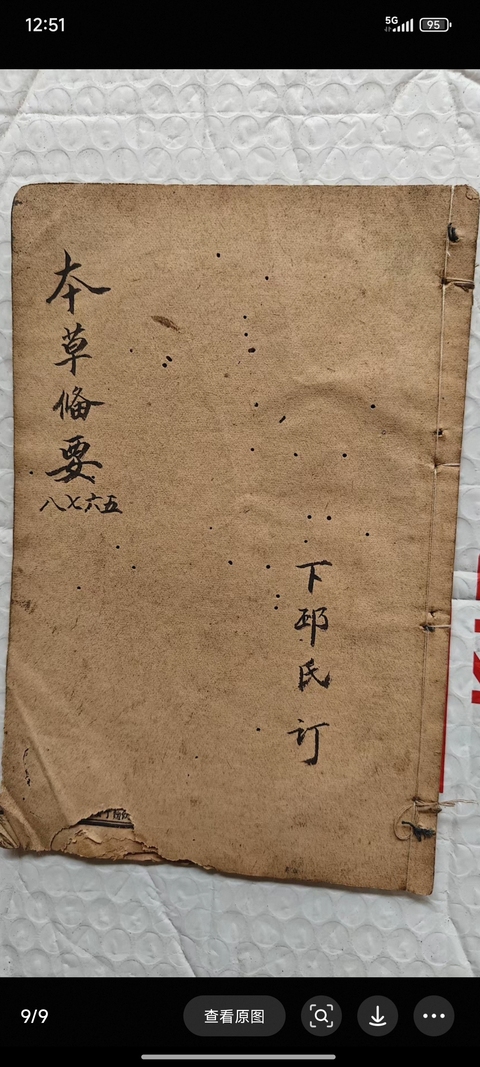 12:51
5G
95
本草備要
八七六五
下邳氏訂
9/9
查看原图